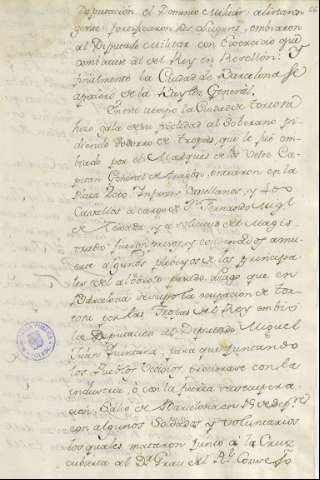 Diputacion el Dominio Militar alistaron
gente fortificaron los Lugares, embiaron
al Diputado Militar con Exercicio que
combatia al del Rey en Rosellon: Y
finalmente la Ciudad de Barcelona se
apoderó de la Bayles General.
En este tiempo la Ciudad de Tortosa
hizo gala de su fidelidad al Soberano pi-
diendo Socorro de Tropas que le fué em-
biado por el Marques de los Velez Ca-
pitan General de Aragon, entraron en la
Plaza 2000 Infantes Castellanos, y 400
Cavallos á cargo de Dn Fernando Migl
de Texada, y á noticia del Magis-
trado fueron presos, y condenados á mu-
erte algunos plebeyos de los principa-
les del alboroto pasado. Luego que en
Barcelona se supo la ocupacion de Tor-
tosa con las Tropas del Rey embió
la Diputacion al Diputado Miguel
Juan Quintana, para que juntando
los Pueblos Vecinos procurase con la
industria, ó con la fuerza su recupera-
cion. Salio de Barcelona en 19 de
con algunos Soldados y voluntarios
los quales mataron junto á la Cruz
cubierta al Dr Grau del Rl Consejo